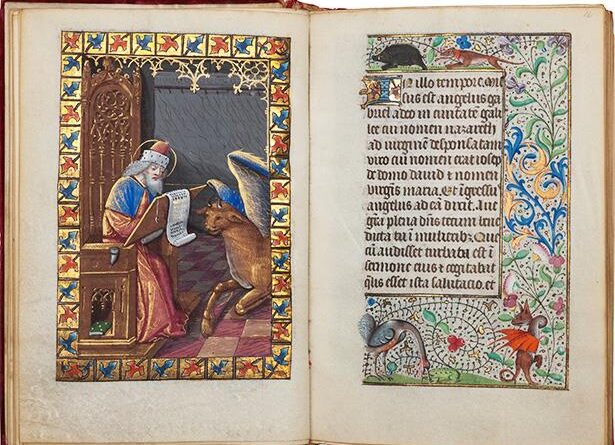 In illo tempore. Mis
sus est angelus ga
briel a deo in ciuitate gali
lee cui nomen nazareth
ad uirginē desponsatam
uiro cui nomen erat iosep
de domo dauid & nomen
uirgīs maria. Et īgressus
angelus ad eā dixit. Aue
gr̄a plena dn̄s tecum bene
dicta tu ī mulieribꝫ. Que
cum audisset turbata est ī
sermone eius & cogitabat
qͣlis esset ista salutacio. et